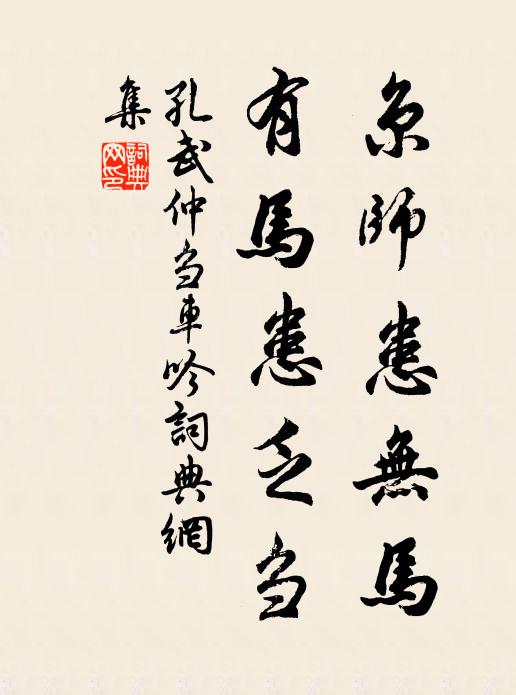 京師患無馬
有馬患乏芻
孔武仲芻車吟詞典網
集
詞典網印